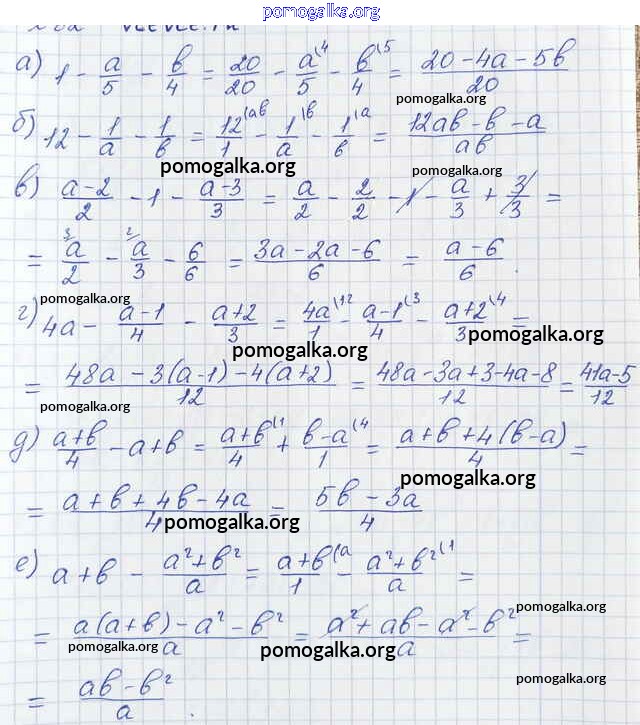 pomogalka.org
а) 1 - a/5 - b/4 = 20/20 - a\4/5 - b\5/4 = (20 - 4a - 5b)/20
pomogalka.org
б) 12 - 1/a - 1/b = 12\ab/1 - 1\b/a - 1\a/b = (12ab - b - a)/ab
pomogalka.org
pomogalka.org
в) (a-2)/2 - 1 - (a-3)/3 = a/2 - 2/2 - 1 - a/3 + 3/3 =
= 3/a/2 - 2/a/3 - 6/6 = (3a - 2a - 6)/6 = (a - 6)/6.
pomogalka.org
г) 4a - (a-1)/4 - (a+2)/3 = 4a\12/1 - a-1\3/4 - a+2\4/3 =
pomogalka.org
pomogalka.org
= (48a - 3(a-1) - 4(a+2))/12 = (48a - 3a + 3 - 4a - 8)/12 = (41a - 5)/12
pomogalka.org
д) (a+b)/4 - a + b = a+b\1/4 + b-a\4/1 = (a + b + 4(b-a))/4 =
pomogalka.org
= (a + b + 4b - 4a)/4 = (5b - 3a)/4
pomogalka.org
е) a + b - (a² + b²)/a = a+b\a/1 - a²+b²\1/a =
pomogalka.org
= (a(a+b) - a² - b²)/a = (a² + ab - a² - b²)/a =
pomogalka.org
pomogalka.org
= (ab - b²)/a.